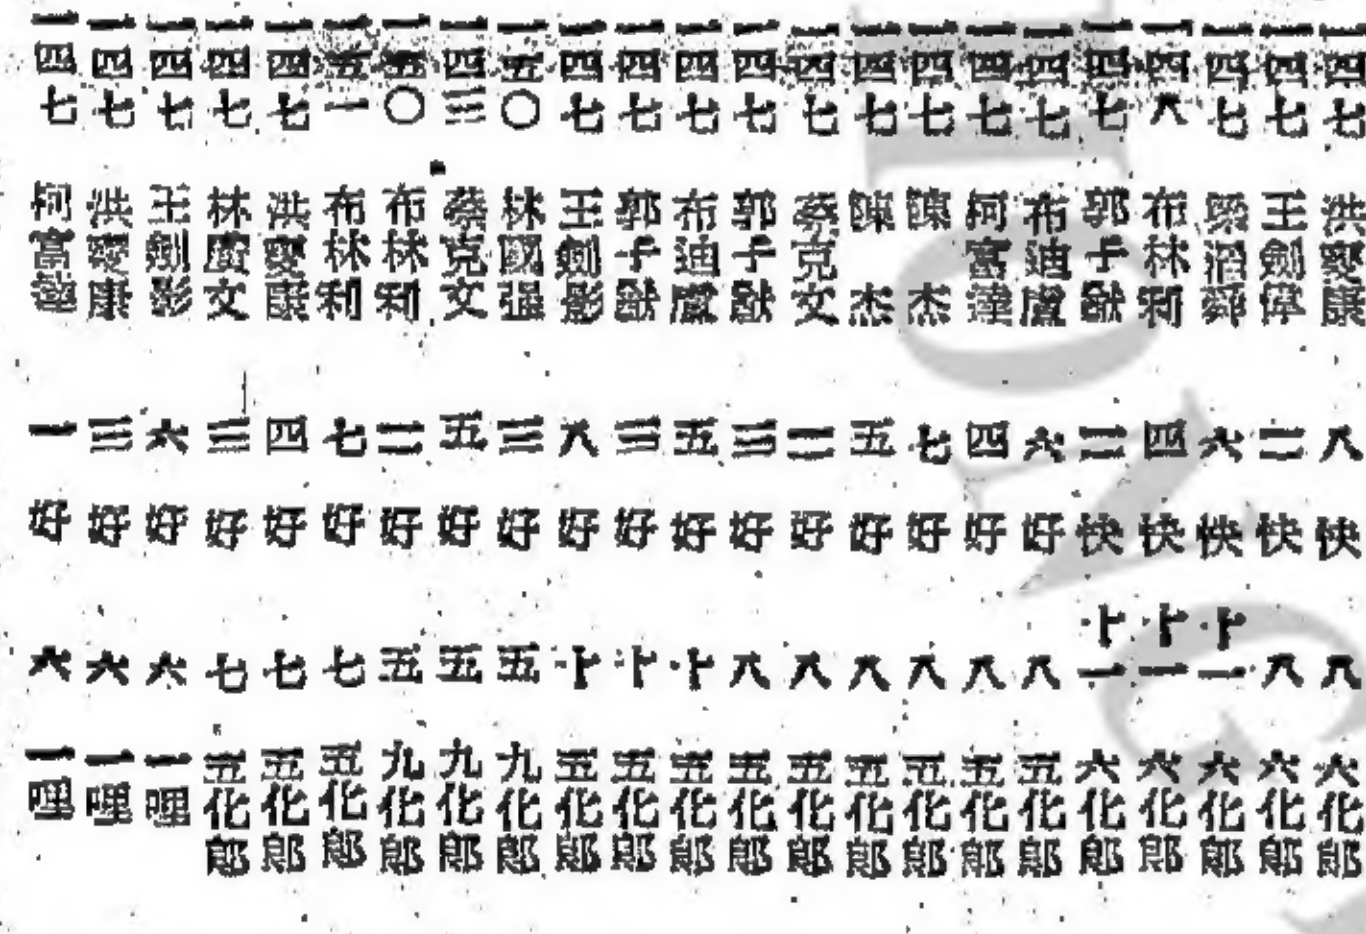 一四七 洪康 八 快 八 六化郎
一四七 王劍偉 二 快 八 六化郎
一四七 六 快 十一 六化郎
一四八 布林利 四 快 十一 六化郎
一四七 郭子猷 二 快 十一 六化郎
一四七 布迪盧 六 好 八 五化郎
一四七 柯富達 四 好 八 五化郎
一四七 陳杰 七 好 八 五化郎
一四七 陳杰 五 好 八 五化郎
一四七 蔡克文 二 好 八 五化郎
一四七 郭子猷 三 好 八 五化郎
一四七 布迪盧 五 好 十 五化郎
一四七 郭子猷 三 好 十 五化郎
一四七 王劍影 八 好 十 五化郎
一五〇 林國强 三 好 五 九化郎
一四三 蔡克文 五 好 五 九化郎
一五〇 布林利 二 好 五 九化郎
一五一 布林利 七 好 七 五化郎
一四七 洪康 四 好 七 五化郎
一四七 林廣文 三 好 七 五化郎
一四七 王劍影 六 好 六 一哩
一四七 洪康 三 好 六 一哩
一四七 柯富達 一 好 六 一哩